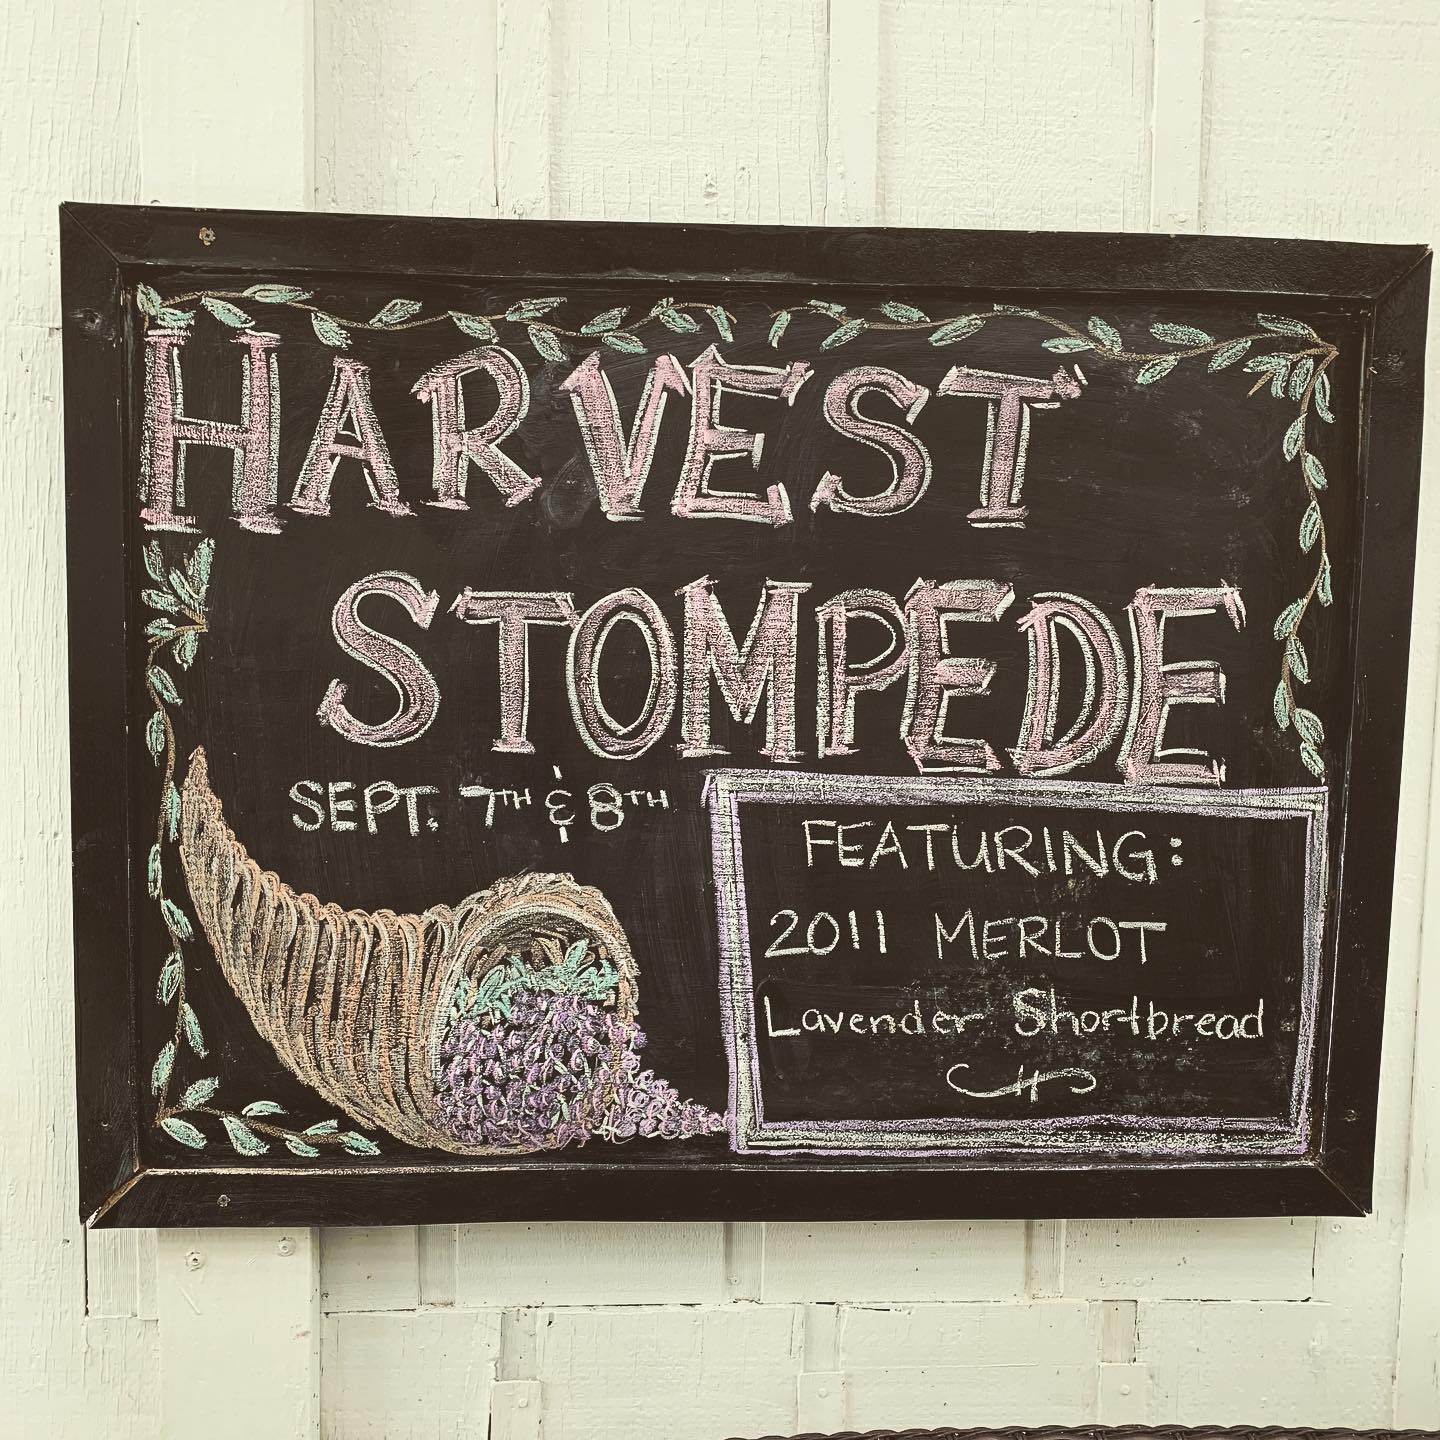 HARVEST
STOMPEDE
SEPT. 7TH & 8TH
FEATURING:
2011 MERLOT
Lavender Shortbread